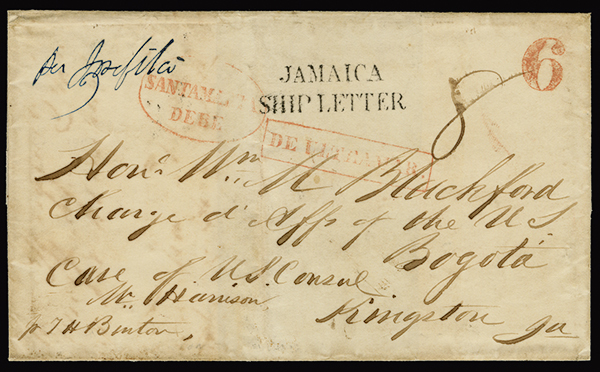 per Josefita
JAMAICA
SHIP LETTER
6
8
SANTAMARTA
DEBE
DE ULTRAMAR.
Honr. Wm. M Blackford
Charge d'Affs of the U S
Bogotá
Care of U.S. Consul
Mr. Harrison
Kingston Ja
pr T H Benton,